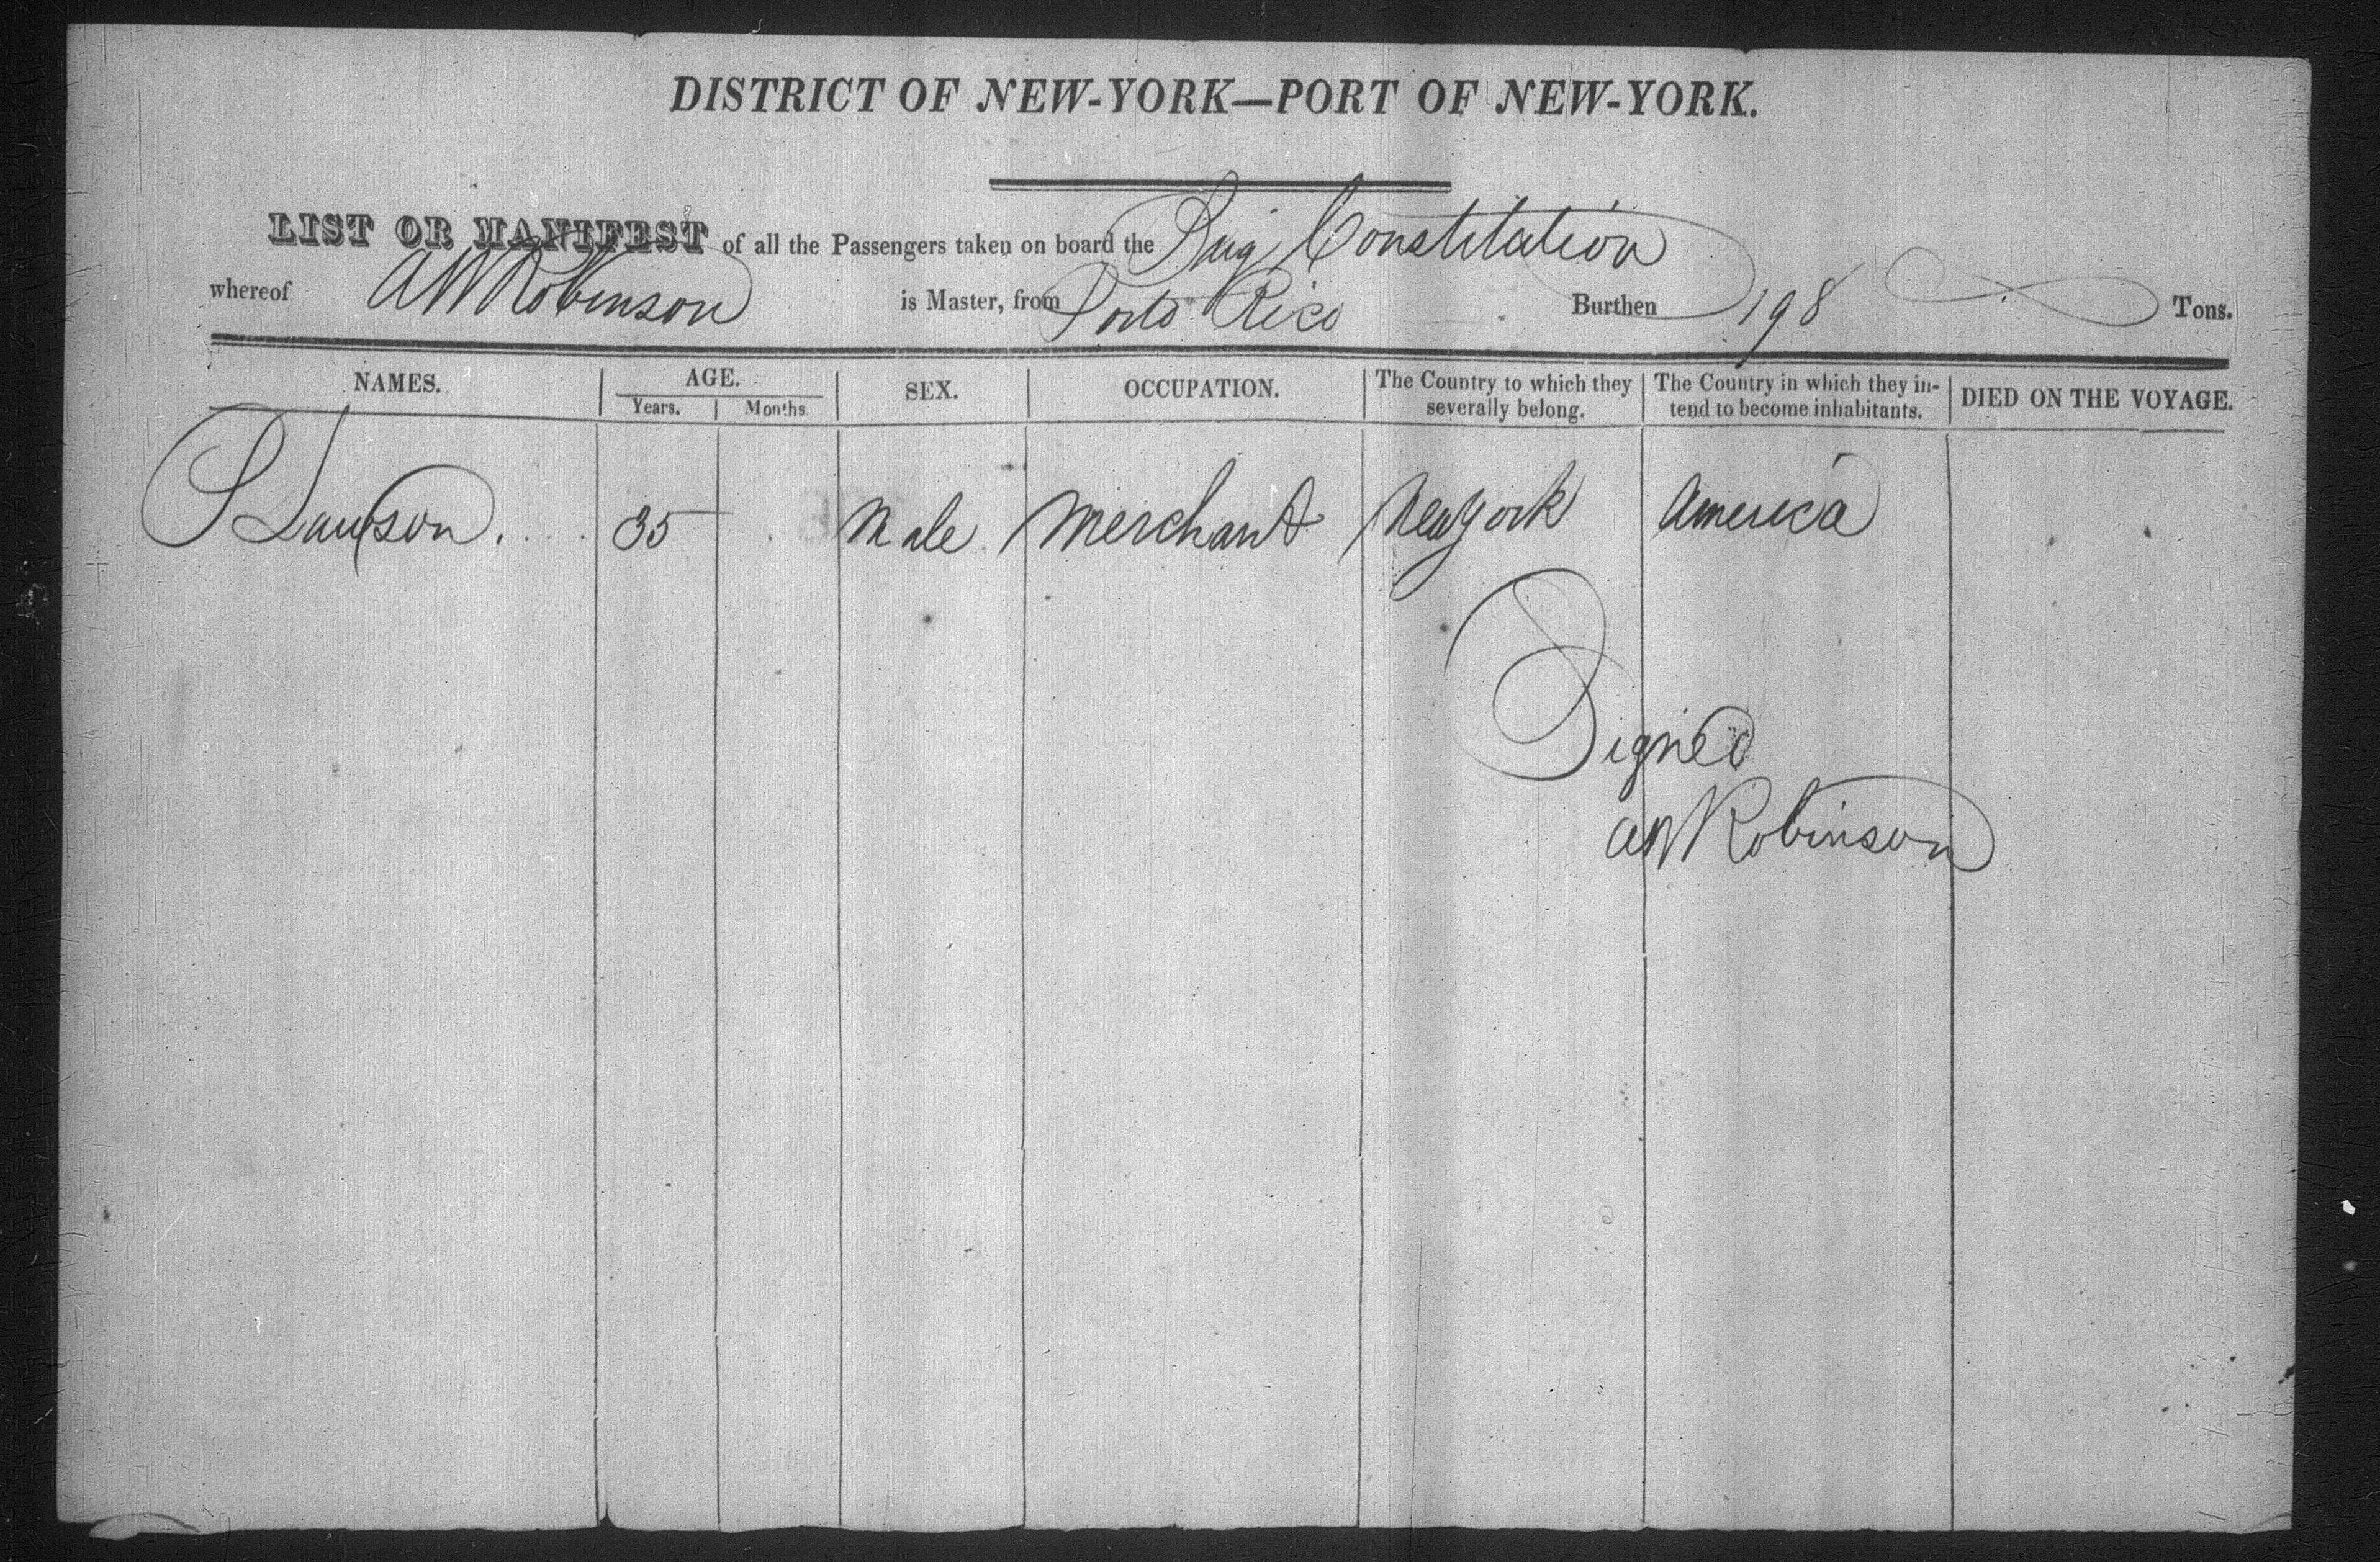 DISTRICT OF NEW-YORK—PORT OF NEW-YORK.
LIST OR MANIFEST of all the Passengers taken on board the Brig Constitution
whereof AW Robinson is Master, from Porto Rico Burthen 198 Tons.
NAMES. AGE. SEX. OCCUPATION. The Country to which they severally belong. The Country in which they in-tend to become inhabitants. DIED ON THE VOYAGE.
Years. Months.
S Lawson. 35 Male Merchant New York America
Signed
AW Robinson